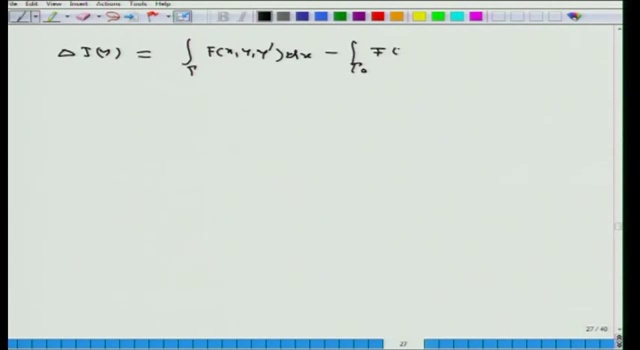 Edit View Insert Actions Tools Help
Δ J(Y) = ∫_Γ F(x, Y, Y') dx − ∫_Γ₀ F (
27 / 40
27